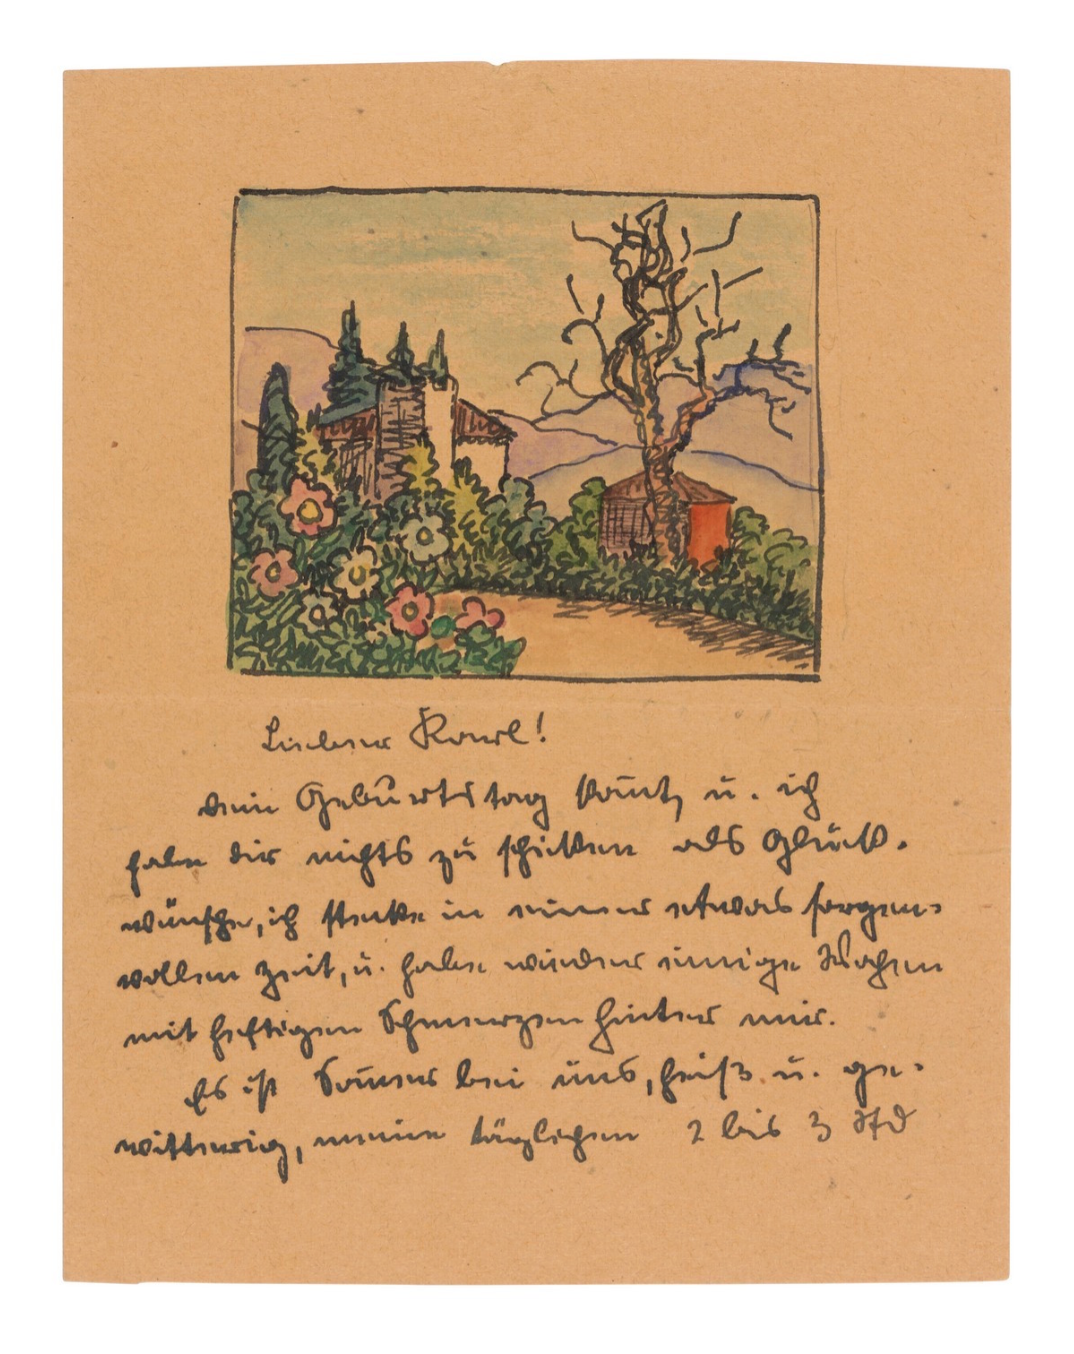 Lieber Karl!
dein Geburtstag kom̄t, u. ich
habe dir nichts zu schicken als Glück-
wünsche, ich stecke in einer etwas sorgen-
vollen Zeit, u. habe wieder einige Wochen
mit heftigen Schmerzen hinter mir.
Es ist Som̄er bei uns, heiß u. ge-
witterig, meine täglichen 2 bis 3 Std